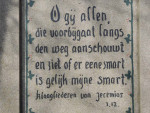 O gij allen,
die voorbijgaat langs
den weg aanschouwt
en ziet of er eene smart
is gelijk mijne smart
klaagliederen van jeremias
1.12.